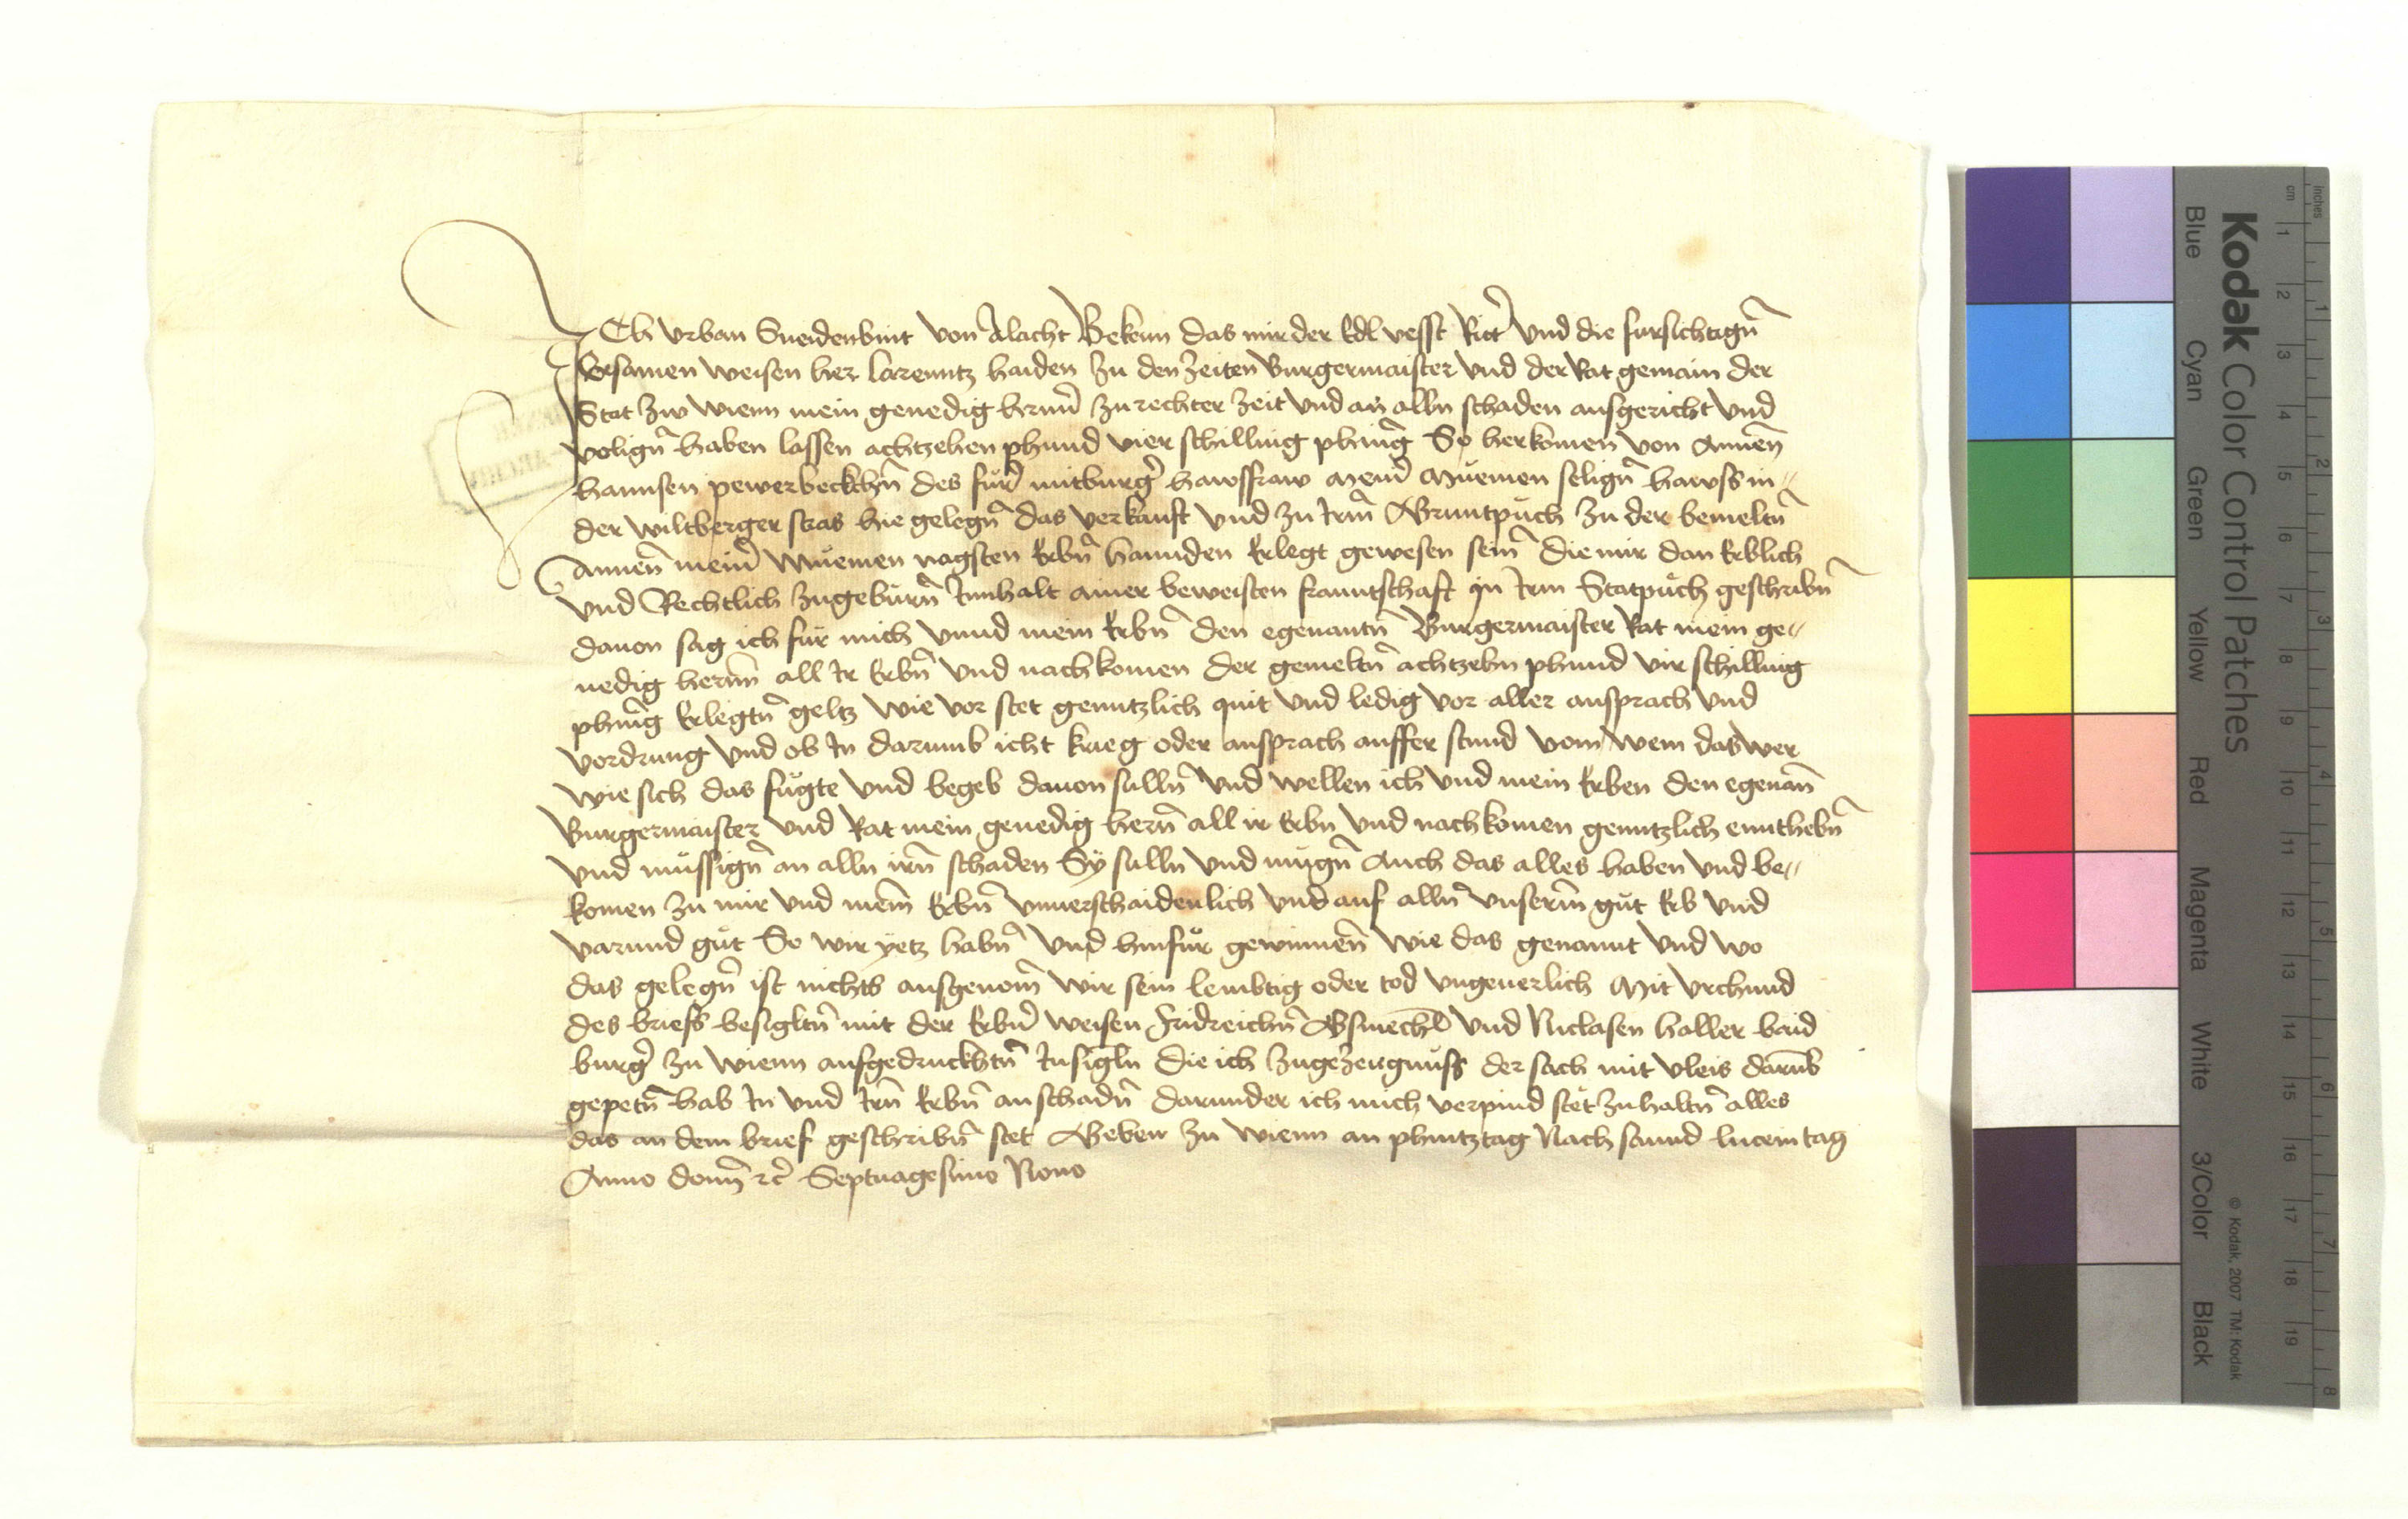 ICh Vrban Sneidenbint von Alacht Bekenn das mir der Edl vesst Ritt̄ vnd die fursichtign̄
Ersamen weisen her larenntz haiden zu den zeiten Burgermaister vnd der Rat gemain der
Stat zw wienn mein genedig hernn̄ zu rechter zeit vnd an alln schaden ausgericht vnd
volign̄ haben lassen achtzehen phund vier schilling phnīg So herkomen von Annen̄
hannsen pewerbeckchn̄ des fur̄ mitburḡ hawsfraw meinr̄ Muemen selign̄ hawss in //
der wiltberger stras hie gelegn̄ das verkauft vnd zu irm̄ Gruntpuch zu der bemeltn̄
Annen̄ meinr̄ Muemen nagsten Erbn̄ hannden Erlegt gewesen sein̄ die mir dan Erblich
vnd Rechtlich zugeburn̄ Innhalt ainer beweisten frauntschaft in irm Statpuch geschribn̄
dauon sag ich fur mich vnnd mein Erbn̄ den egenantn̄ Burgermaister Rat mein ge //
nedig hernn̄ all Ir Erbn̄ vnd nachkomen der gemeltn̄ achtzehn phund vir schilling
phnīg Erlegtn̄ geltz wie vor stet genntzlich quit vnd ledig vor aller ansprach vnd
vordrung vnd ob In darumb icht krieg oder ansprach aufferstund vom wem das wer
wie sich das fugte vnd begeb dauon sulln̄ vnd wellen ich vnd mein Erben den egenan̄
Burgermaister vnd Rat mein genedig hern̄ all ir Erbn vnd nachkomen genntzlich ennthebn̄
vnd mussign̄ an alln irn̄ schaden Sy sulln vnd mugn̄ Auch das alles haben vnd be //
komen zu mir vnd meim̄ Erbn̄ vnuerschaidenlich vnd auf alln̄ vnserm̄ gut Erb vnd
varund gut So wir yetz habn̄ vnd hinfur gewinnen̄ wie das genannt vnd wo
das gelegn̄ ist nichts ausgenom̄ wir sein lembtig oder tod vngeuerlich Mit vrchund
des briefs besigltn̄ mit der Erbn̄ weisen Fridreichn̄ Gsmechl vnd Niclasen haller baid
burḡ zu wienn aufgedruckhtn̄ Insigln die ich zugezeugnuss der sach mit vleis darūb
gepetn̄ hab In vnd Irn̄ Erbn̄ an schadn̄ darunder ich mich verpind stet zuhaltn̄ alles
das an dem brief geschribn̄ stet Geben zu wienn an phintztag Nach sannd lucein tag
Anno domī rc̄ Septuagesimo Nono
Kodak Color Control Patches
Blue Cyan Green Yellow Red Magenta White 3/Color Black
© Kodak, 2007 TM: Kodak
cm 1 2 3 4 5 6 7 8 9 10 11 12 13 14 15 16 17 18 19
inches 1 2 3 4 5 6 7 8